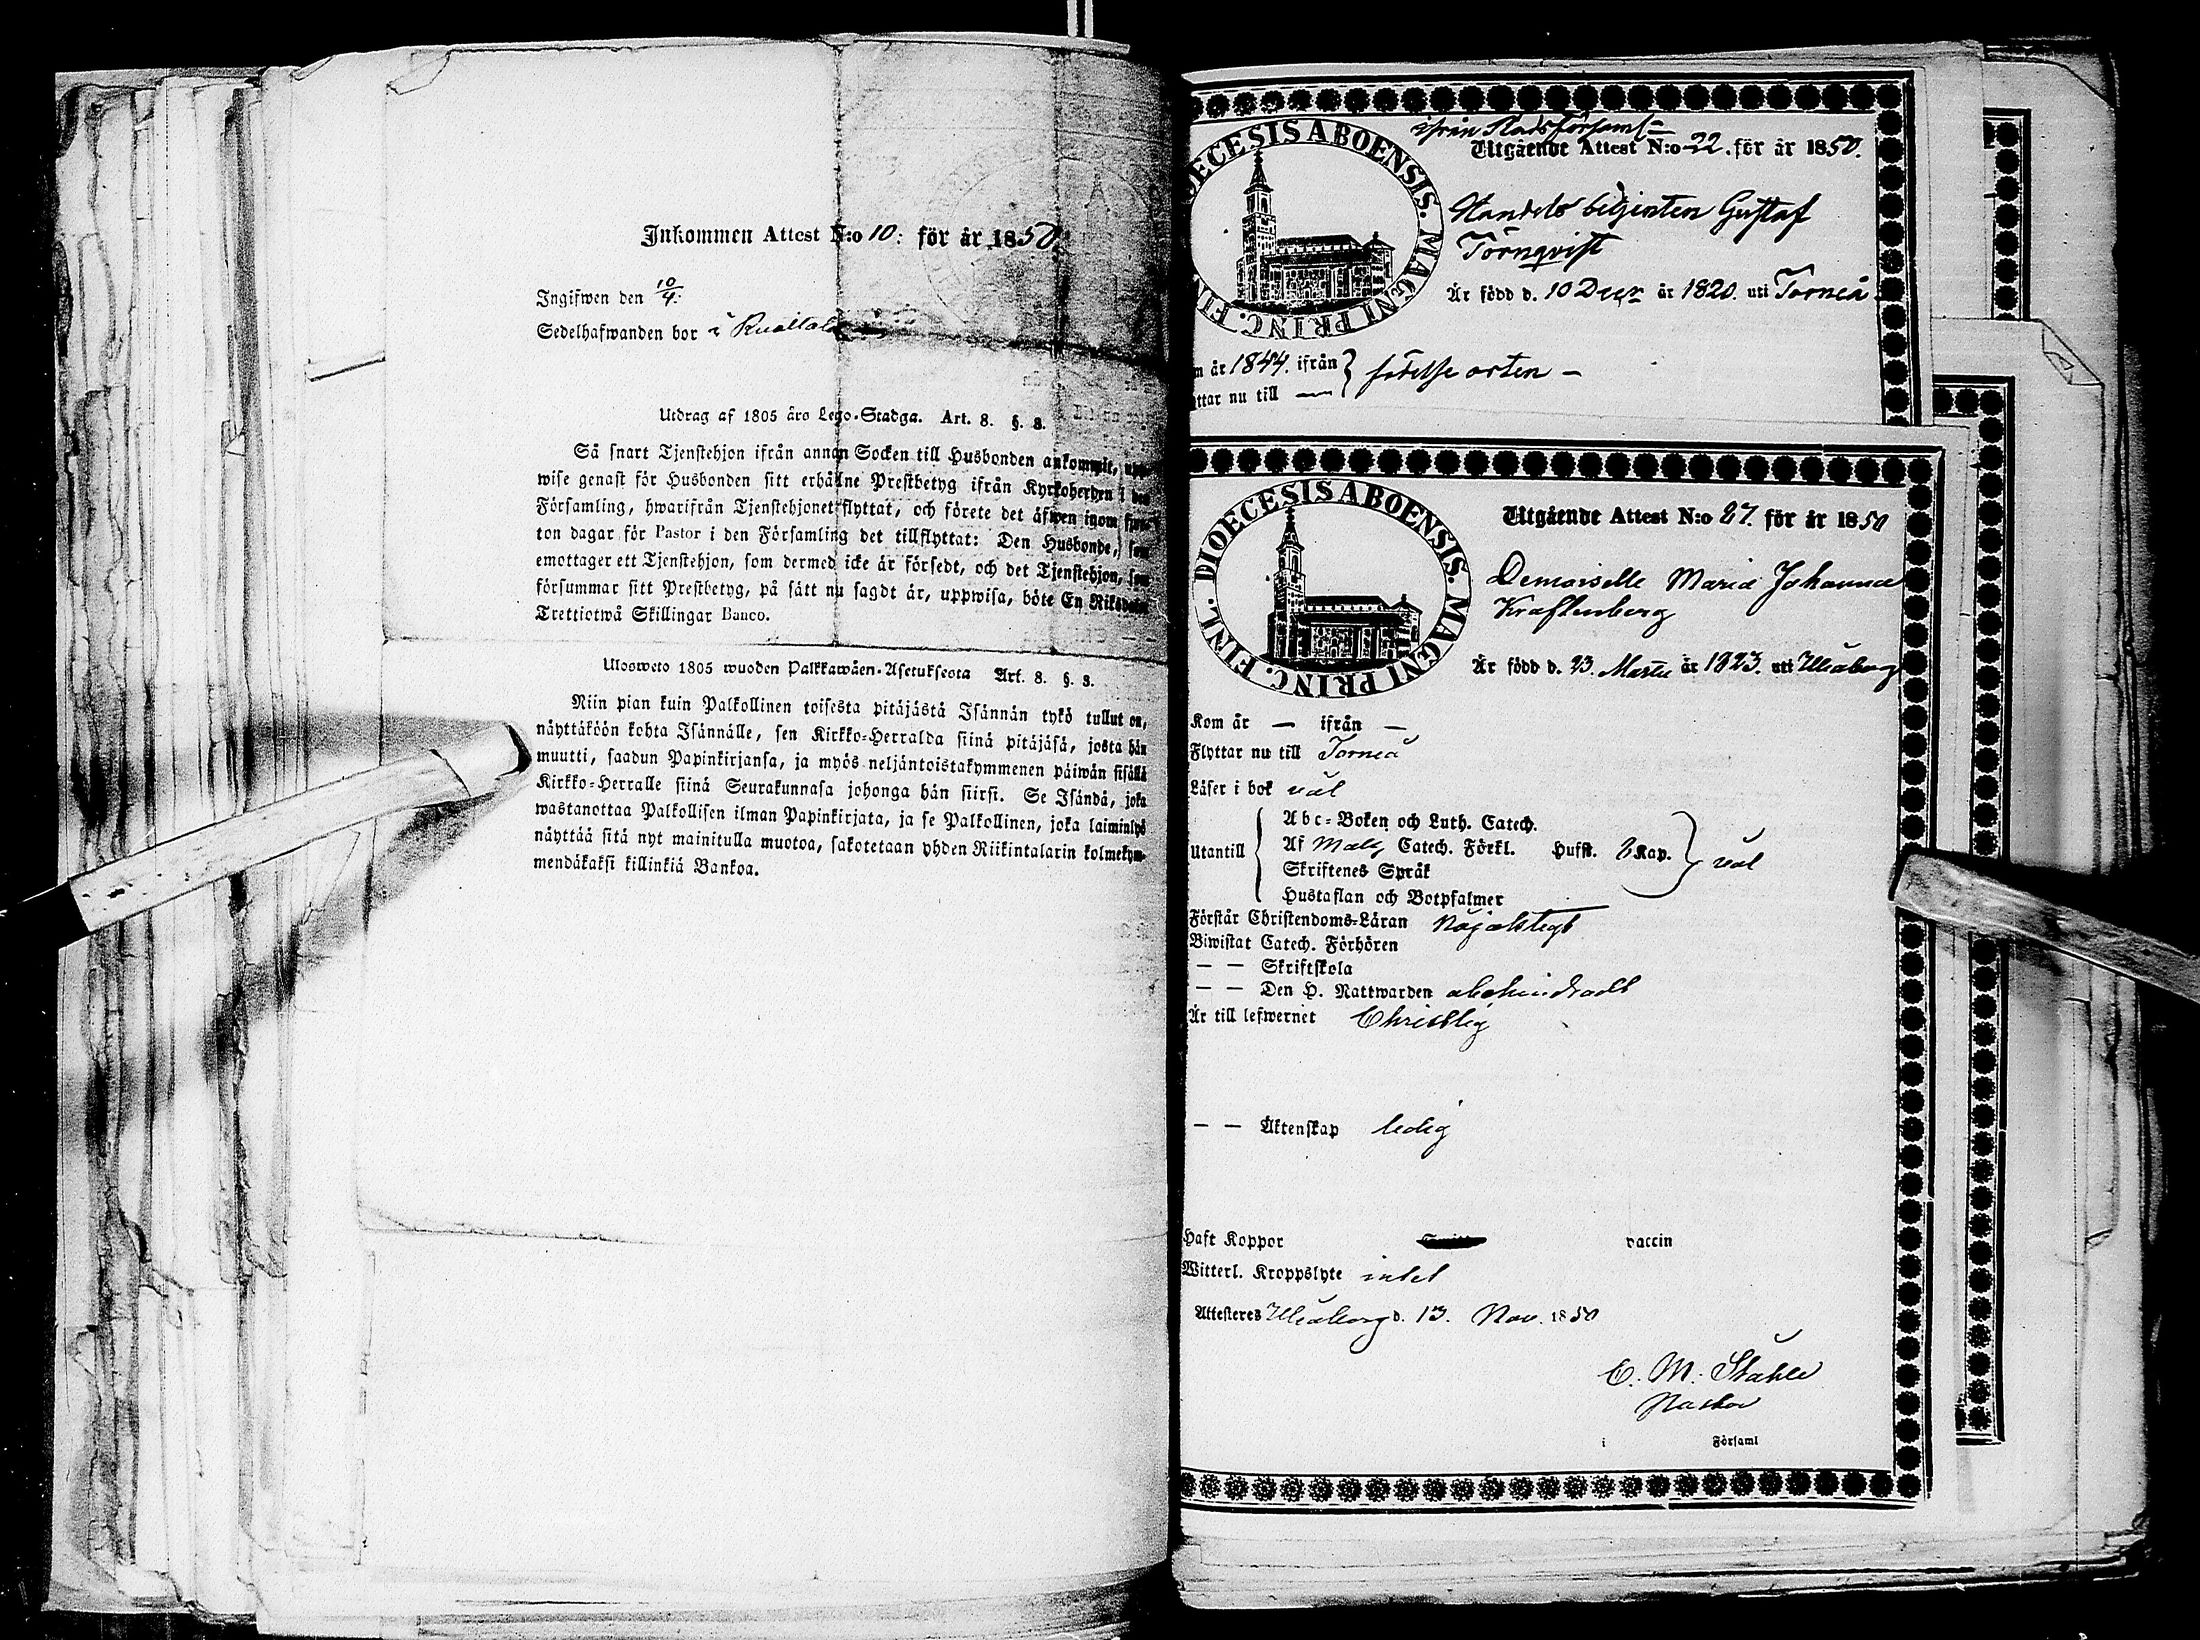 Inkommen Attest N:o 10: för år 1850.
Ingifwen den 10/4:
Sedelhafwanden bor i
Utdrag af 1805 års Lego-Stadga. Art. 8. §. 8.
Så snart Tjenstehjon ifrån annan Socken till Husbonden ankommit, upp-
wise genast för Husbonden sitt erhållne Prestbetyg ifrån Kyrkoherden i den
Församling, hwarifrån Tjenstehjonet flyttat, och förete det äfwen inom fjor-
ton dagar för Pastor i den Församling det tillflyttat: Den Husbonde, som
emottager ett Tjenstehjon, som dermed icke är försedt, och det Tjenstehjon, som
försummar sitt Prestbetyg, på sätt nu sagdt är, uppwisa, böte En Riksdaler
Trettiotwå Skillingar Banco.
Ulosweto 1805 wuoden Palkkawäen-Asetuksesta Art. 8. §. 8.
Niin pian kuin Palkollinen toisesta pitäjästä Isännän tykö tullut on,
näyttäköön kohta Isännälle, sen Kirkko-Herralda siinä pitäjäsä, josta hän
muutti, saadun Papinkirjansa, ja myös neljäntoistakymmenen päiwän sisällä
Kirkko-Herralle siinä Seurakunnasa johonga hän siirsi. Se Isändä, joka
wastanottaa Palkollisen ilman Papinkirjata, ja se Palkollinen, joka laiminlyö
näyttää sitä nyt mainitulla muotoa, sakotetaan yhden Riikintalarin kolmekym-
mendäkaksi killinkiä Bankoa.
ifrån Stadsförsaml
Utgående Attest N:o 22. för år 1850.
DIOECESIS ABOENSIS. MAGNI PRINC. FINL.
Handels betjenten Gustaf
Törnqvist
Är född d. 10 Decr år 1820. uti Torneå
m år 1844. ifrån } födelse orten —
ttar nu till —
Utgående Attest N:o 27. för år 1850
DIOECESIS ABOENSIS. MAGNI PRINC. FINL.
Demoiselle Maria Johanna
Kraftenberg
Är född d. 23. Martii år 1823. uti Uleåborg
Kom år — ifrån —
Flyttar nu till Torneå
Läser i bok väl
Utantill { Abc-Boken och Luth. Catech.
Af Catech. Förkl. Husst. Kap. } väl
Skriftenes Språk
Hustaflan och Botpsalmer
Förstår Christendoms-Läran Nöjaktigt
Biwistat Catech. Förhören
— — Skriftskola
— — Den H. Nattwarden obehindradt
Är till lefwernet Christlig
— — Äktenskap ledig
Haft Koppor vaccin
Witterl. Kroppslyte intet
Attesteres Uleåborg d. 13. Nov. 1850
C. M. Ståhle
Pastor
i Församl